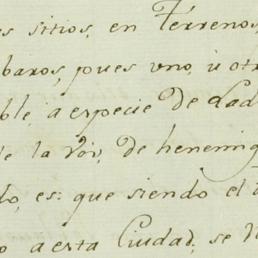 es sitios, en Terrenos,
baros, pues uno, u otr
ble a especie de Lad
de la Voz, de henemig
do, es: que siendo el
o a esta Ciudad, se